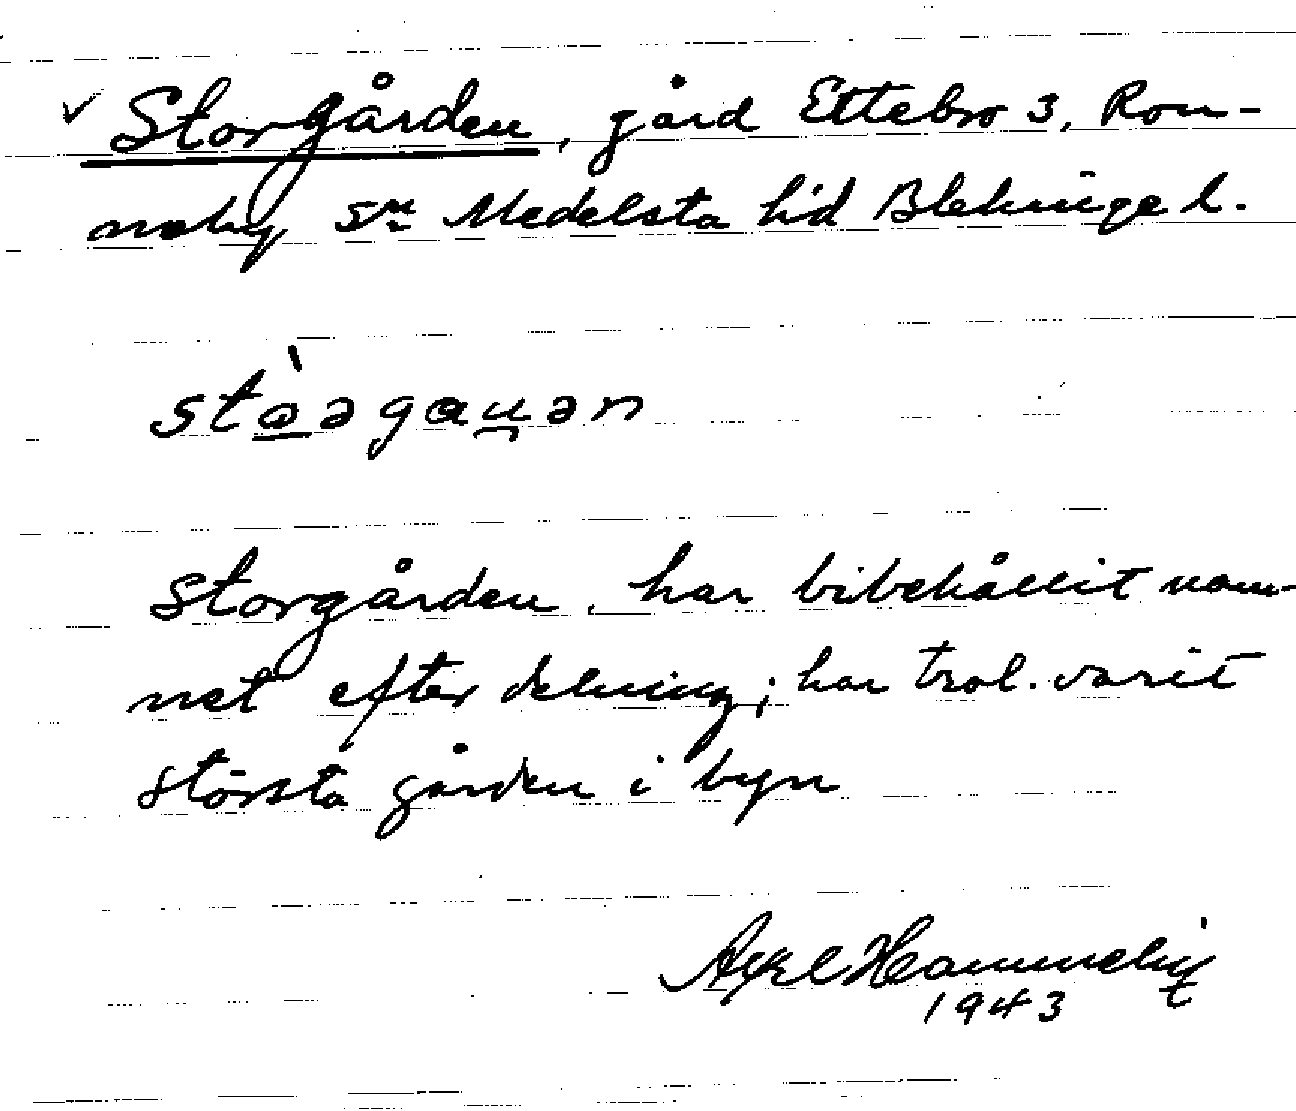 ✓ Storgården, gård Ettebro 3, Ron-
neby sn Medelsta hd Blekinge l.
stò̲əgau̯ən
Storgården har bibehållit nam-
net efter delning; har trol. varit
största gården i byn
Axel Hammelin
1943